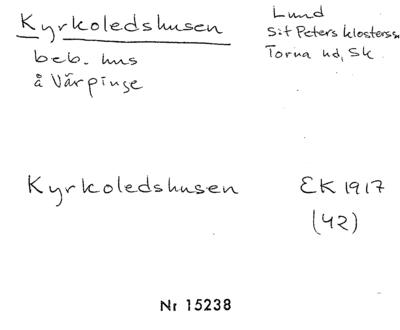 Kyrkoledshusen
beb. hus
å Värpinge
Lund
S:t Peters klosters sn
Torna hd, Sk.
Kyrkoledshusen EK 1917
(42)
Nr 15238